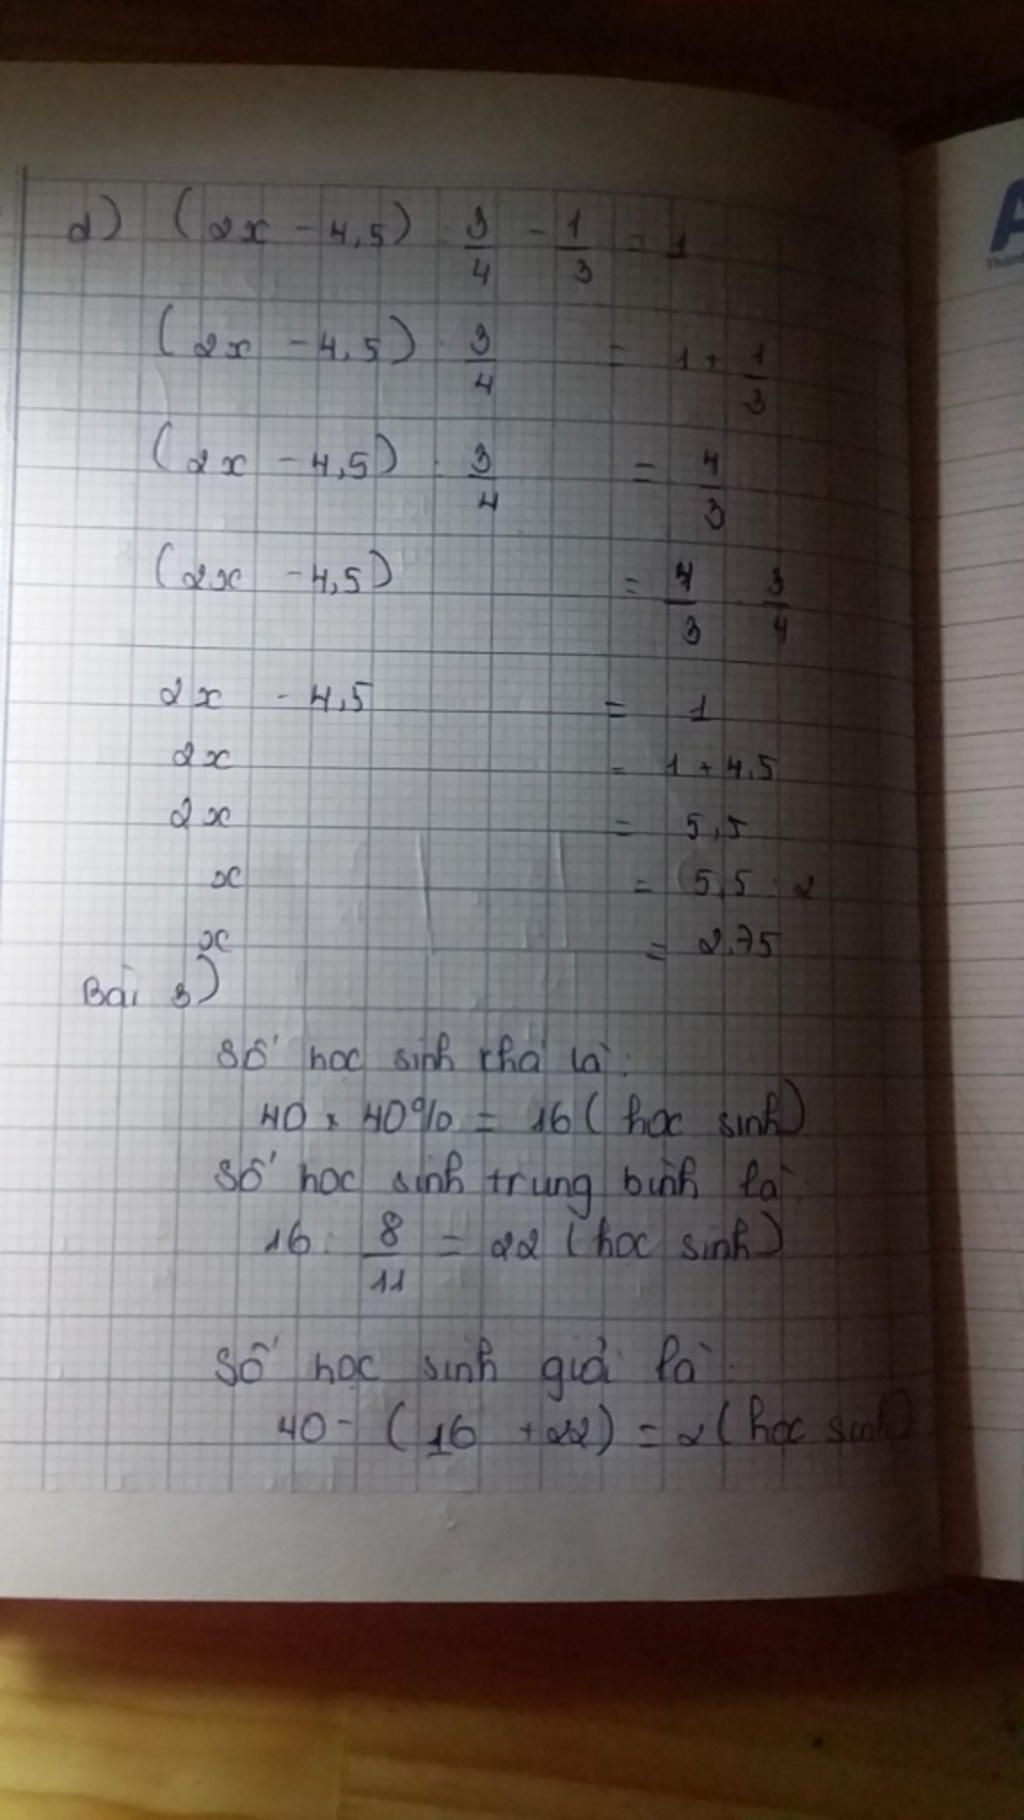 d) (2x - 4,5) . 3/4 - 1/3 = 1
(2x - 4,5) . 3/4 = 1 + 1/3
(2x - 4,5) . 3/4 = 4/3
(2x - 4,5) = 4/3 . 3/4
2x - 4,5 = 1
2x = 1 + 4,5
2x = 5,5
x = 5,5 : 2
x = 2,75
Bài 3)
Số học sinh khá là:
40 x 40% = 16 (học sinh)
Số học sinh trung bình là:
16 : 8/11 = 22 (học sinh)
Số học sinh giỏi là:
40 - (16 + 22) = 2 (học sinh)